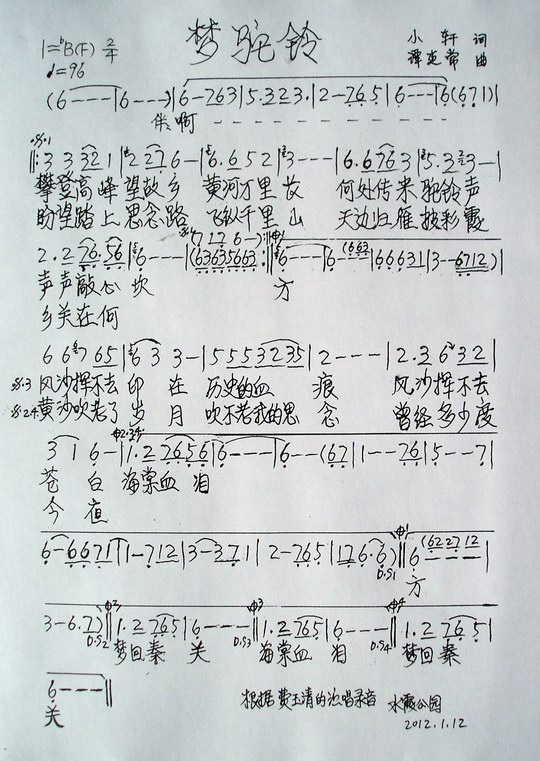 梦驼铃
1=ᵇB(F) 2/4
♩=96
小轩 词
谭健常 曲
(6---|6---)|6-763|5.323.|2-765|6---|6(671)|
伴.啊 - - - - - - - -
𝄋.1
‖:3 3 321|2 2276-|6.652|3---|6.6763|5.323-|
攀登高峰 望故乡 黄河万里长 何处传来 驼铃声
盼望踏上 思念路 飞纵千里山 天边归雁披彩霞
2.276.56|6---|(63635663:‖6---|6-(663|666631|3--6712)|
声声敲心坎 方
乡关在何
6 6 65|6 3 3-|5553235|2---|2.3 632|
𝄋.3 风沙挥不去 印在 历史的血痕 风沙挥不去
𝄋.24 黄沙吹老了 岁月 吹不老我的思念 曾经多少度
3 1 6-|1.27656|6---|6--(67|1--76|5--7|
苍白 海棠血泪
今夜
6-6671|1-712|3-371|2-765|176.6)‖6---|
(622712
D.S1
方
3-6.7)‖1.2765|6---‖1.2765|6---‖1.2765|
D.S2 梦回秦 关 D.S3 海棠血 泪 D.S4 梦回秦
6---‖
关
根据费玉清的演唱录音 水霞公园
2012.1.12